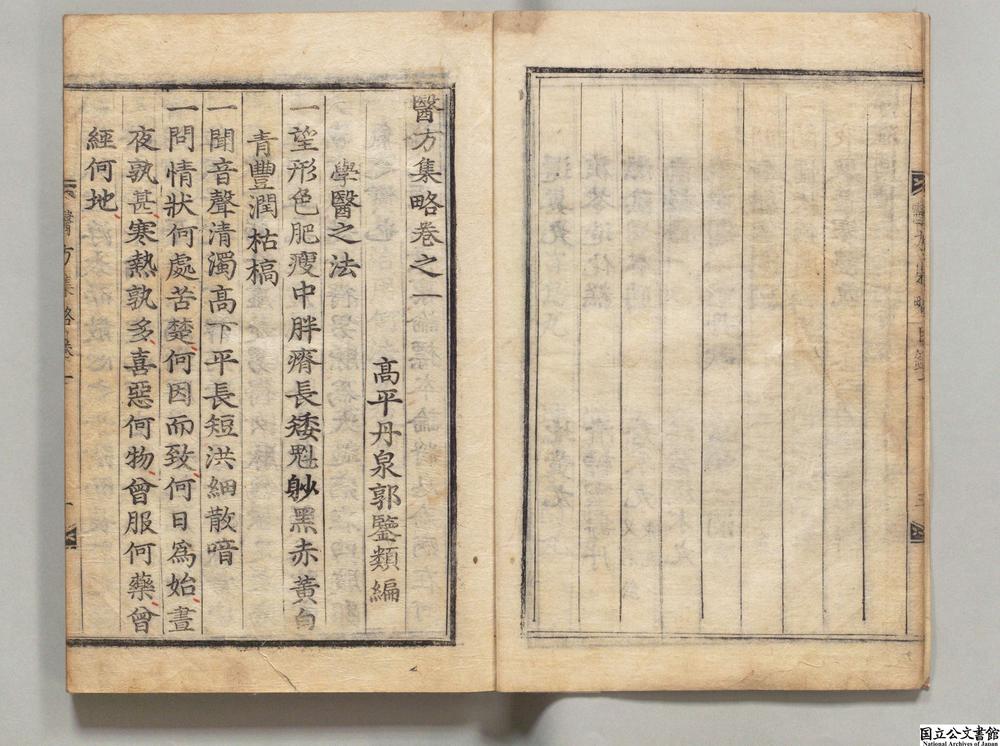 醫方集略卷之一
高平丹泉郭鑒類編
學醫之法
一望形色肥瘦中胖瘠長矮魁䠷黑赤黃白
青豐潤枯槁
一聞音聲清濁高下平長短洪細散喑
一問情狀何處苦楚何因而致何日爲始晝
夜孰甚寒熱孰多喜惡何物曾服何藥曾
經何地
醫方集略卷一
一
三
国立公文書館
National Archives of Japan